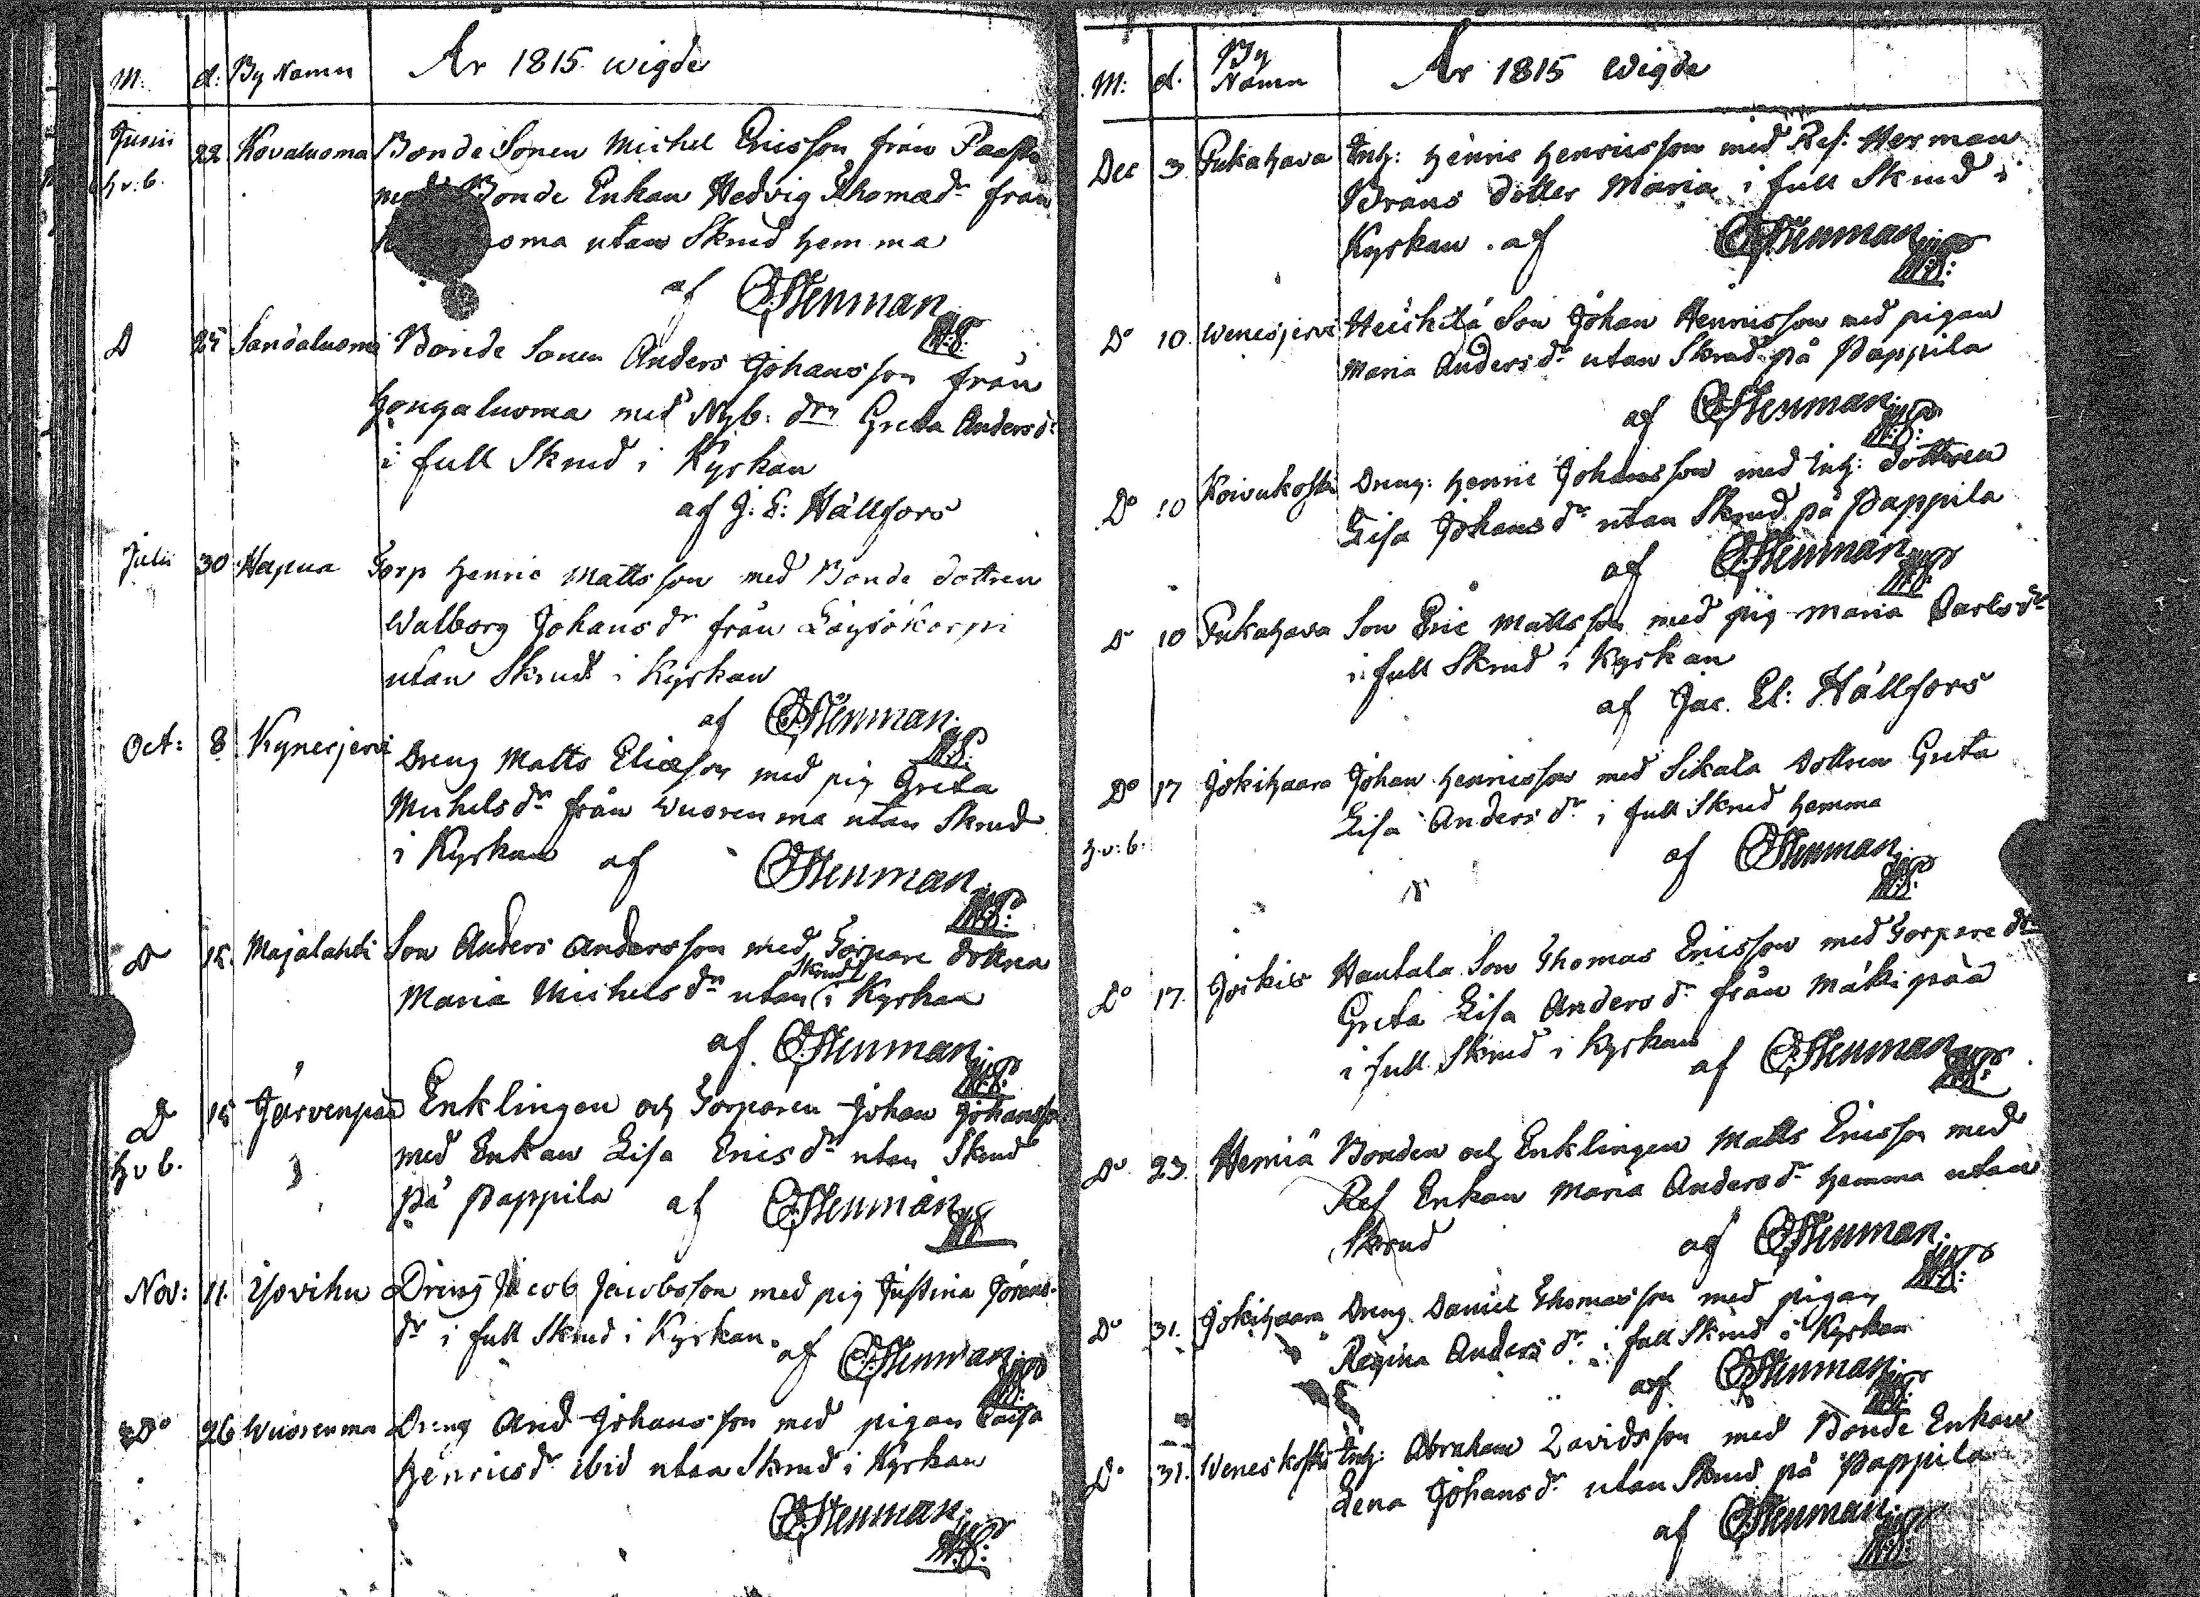 M: d: By Namn År 1815 wigde
Junii 22 Kovaluoma Bonde Sonen Michel Ericsson från
h v: b. Bonde Enkan Hedvig Thomæ dr från
oma utan Skrud hemma
af CStenman
D 25 Sandaluoma Bonde Sonen Anders Johansson från
Hongaluoma med Nyb: drn Greta Anders dr
i full Skrud i Kyrkan
af J: E: Hällfors
Julii 30 Hapua Torp Henric Mattsson med Bonde dottren
Walborg Johans dr från Löysökorpi
utan Skrud i Kyrkan
af CStenman
Oct: 8 Kynesjervi Dreng Matts Eliasson med pig Greta
Michels dr från Wuorenma utan Skrud
i Kyrkan af CStenman
D 15. Majalahti Son Anders Andersson med Torpare dottren
Maria Michels dr utan Skrud i Kyrkan
af CStenman
D 15 Järvenpää Enklingen och Torparen Johan Johansson
h v b. med Enkan Lisa Erics dr utan Skrud
på Pappila af CStenman
Nov: 11. Yovihu Dreng Jacob Jacobsson med pig Justina Jörans
dr i full Skrud i Kyrkan. af CStenman
Do 26 Wuorenma Dreng And Johansson med pigan Caisa
Henrics dr ibid utan Skrud i Kyrkan
CStenman
M: d. By Namn År 1815 wigde
Dec 3 Pukahara Inh: Henric Henricsson med Ref: Herman
Bråns dotter Maria i full Skrud i
Kyrkan. af CStenman
Do 10 Wenesjervi Heickilä Son Johan Henricsson med pigan
Maria Anders dr utan Skrud på Pappila
af CStenman
Do 10 Koivukoski Dreng: Henric Johansson med Inh: dottren
Lisa Johans dr utan Skrud på Pappila
af CStenman
D 10 Pukahara Son Eric Mattsson med pig Maria Carls dr
i full Skrud i Kyrkan
af Jac. El: Hällfors
Do 17 Jokihaara Johan Henricsson med Sikala dottren Greta
h.v: b. Lisa Anders dr i full Skrud hemma
af CStenman
Do 17. Jockis Hautala Son Thomas Ericsson med Torpare dr
Greta Lisa Anders dr från Mäkipää
i full Skrud i Kyrkan af CStenman
Do 23. Hemiä Bonden och Enklingen Matts Ericsson med
Ref Enkan Maria Anders dr hemma utan
Skrud af CStenman
Do 31. Jokihaara Dreng Daniel Thomasson med pigan
Regina Anders dr i full Skrud i Kyrkan
af CStenman
Do 31. Weneskoski Inh: Abraham Davidsson med Bonde Enkan
Lena Johans dr utan Skrud på Pappila
af CStenman